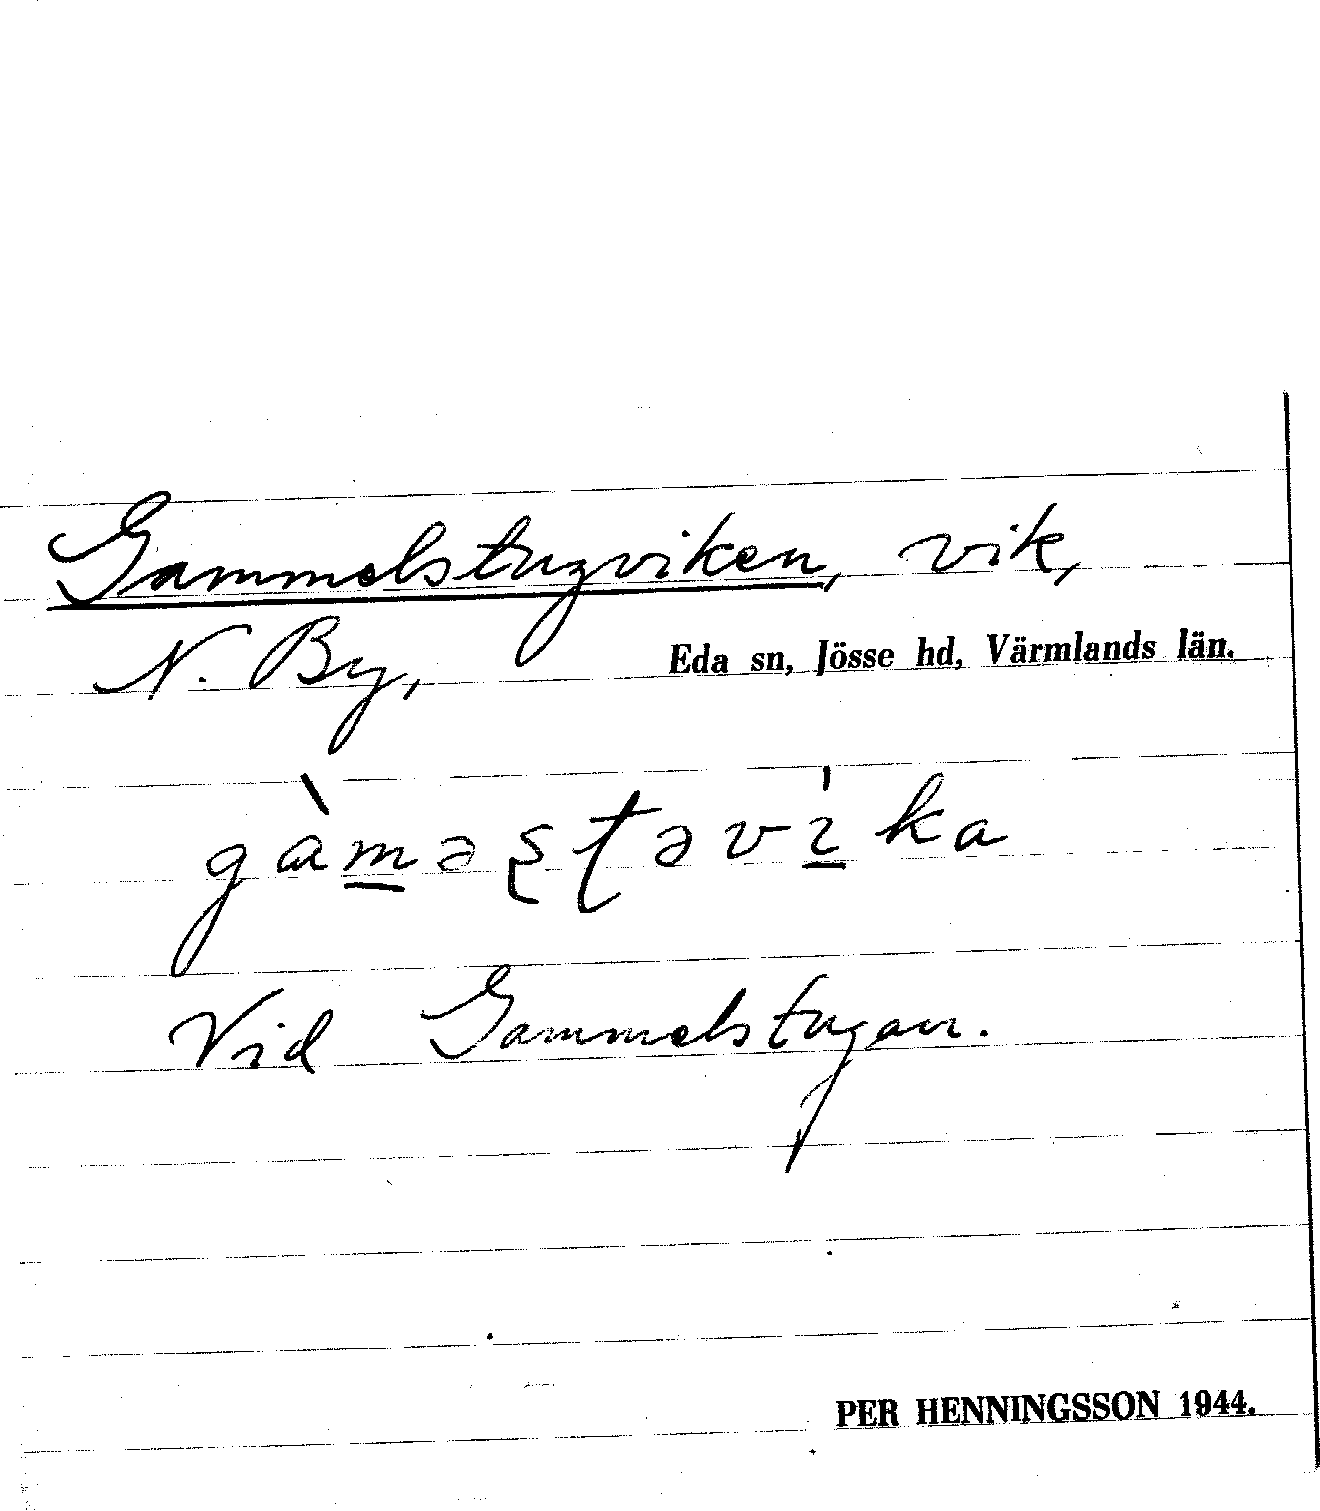 Gammelstugviken, vik,
N. By, Eda sn, Jösse hd, Värmlands län.
gàm̲əʂʈəvı̲̍ka
Vid Gammelstugan.
PER HENNINGSSON 1944.